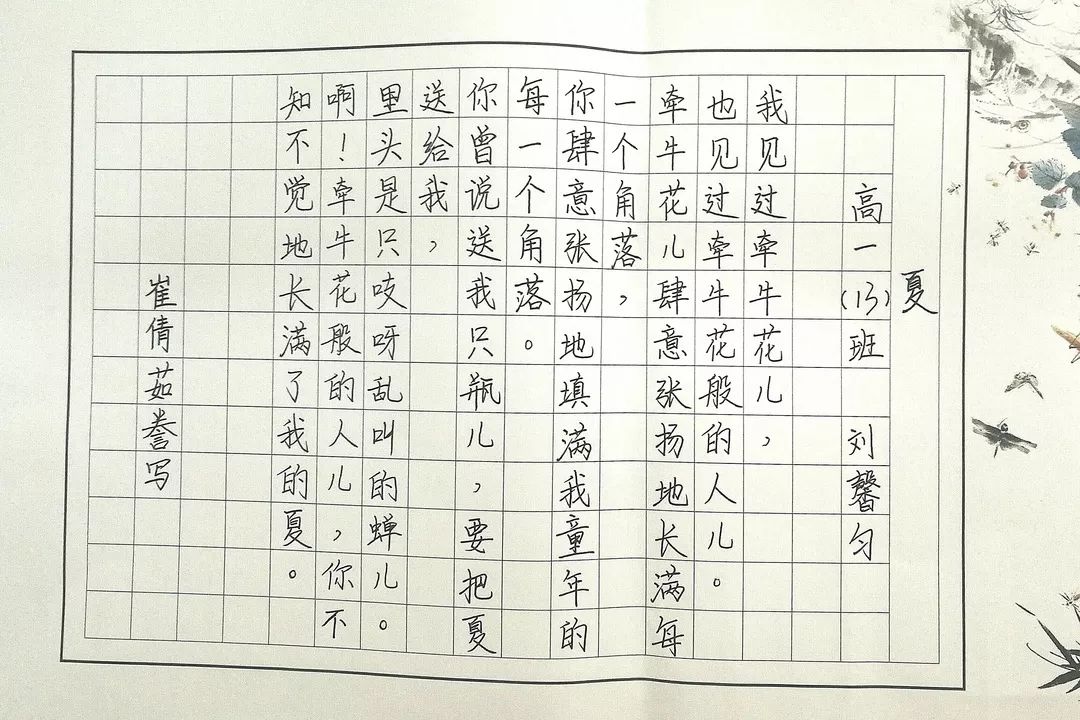 夏
高一(13)班 刘馨匀
我见过牵牛花儿，
也见过牵牛花般的人儿。
牵牛花儿肆意张扬地长满每
一个角落，
你肆意张扬地填满我童年的
每一个角落。
你曾说送我只瓶儿，要把夏
送给我，
里头是只吱呀乱叫的蝉儿。
啊！牵牛花般的人儿，你不
知不觉地长满了我的夏。
崔倩茹誊写